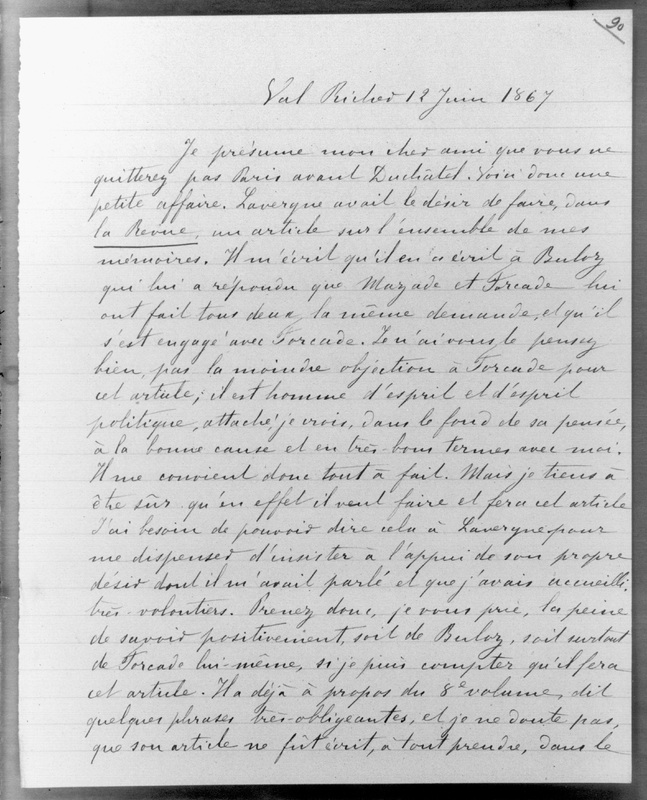 90
Val Richer 12 Juin 1867
Je présume mon cher ami que vous ne
quitterez pas Paris avant Duchâtel. Voici donc une
petite affaire. Lavergne avait le désir de faire, dans
la Revue, un article sur l'ensemble de mes
mémoires. Il m'écrit qu'il en a écrit à Buloz
qui lui a répondu que Mazade et Forcade lui
ont fait tous deux, la même demande, et qu'il
s'est engagé avec Forcade. Je n'ai vous le pensez
bien, pas la moindre objection à Forcade pour
cet article; il est homme d'esprit et d'esprit
politique, attaché, je crois, dans le fond de sa pensée,
à la bonne cause et en très-bons termes avec moi.
Il me convient donc tout à fait. Mais je tiens à
être sûr qu'en effet il veut faire et fera cet article
J'ai besoin de pouvoir dire cela à Lavergne pour
me dispenser d'insister à l'appui de son propre
désir dont il m'avait parlé et que j'avais accueilli
très-volontiers. Prenez donc, je vous prie, la peine
de savoir positivement, soit de Buloz, soit surtout
de Forcade lui-même, si je puis compter qu'il fera
cet article. Il a déjà à propos du 8e volume, dit
quelques phrases très-obligeantes, et je ne doute pas,
que son article ne fût écrit, à tout prendre, dans le